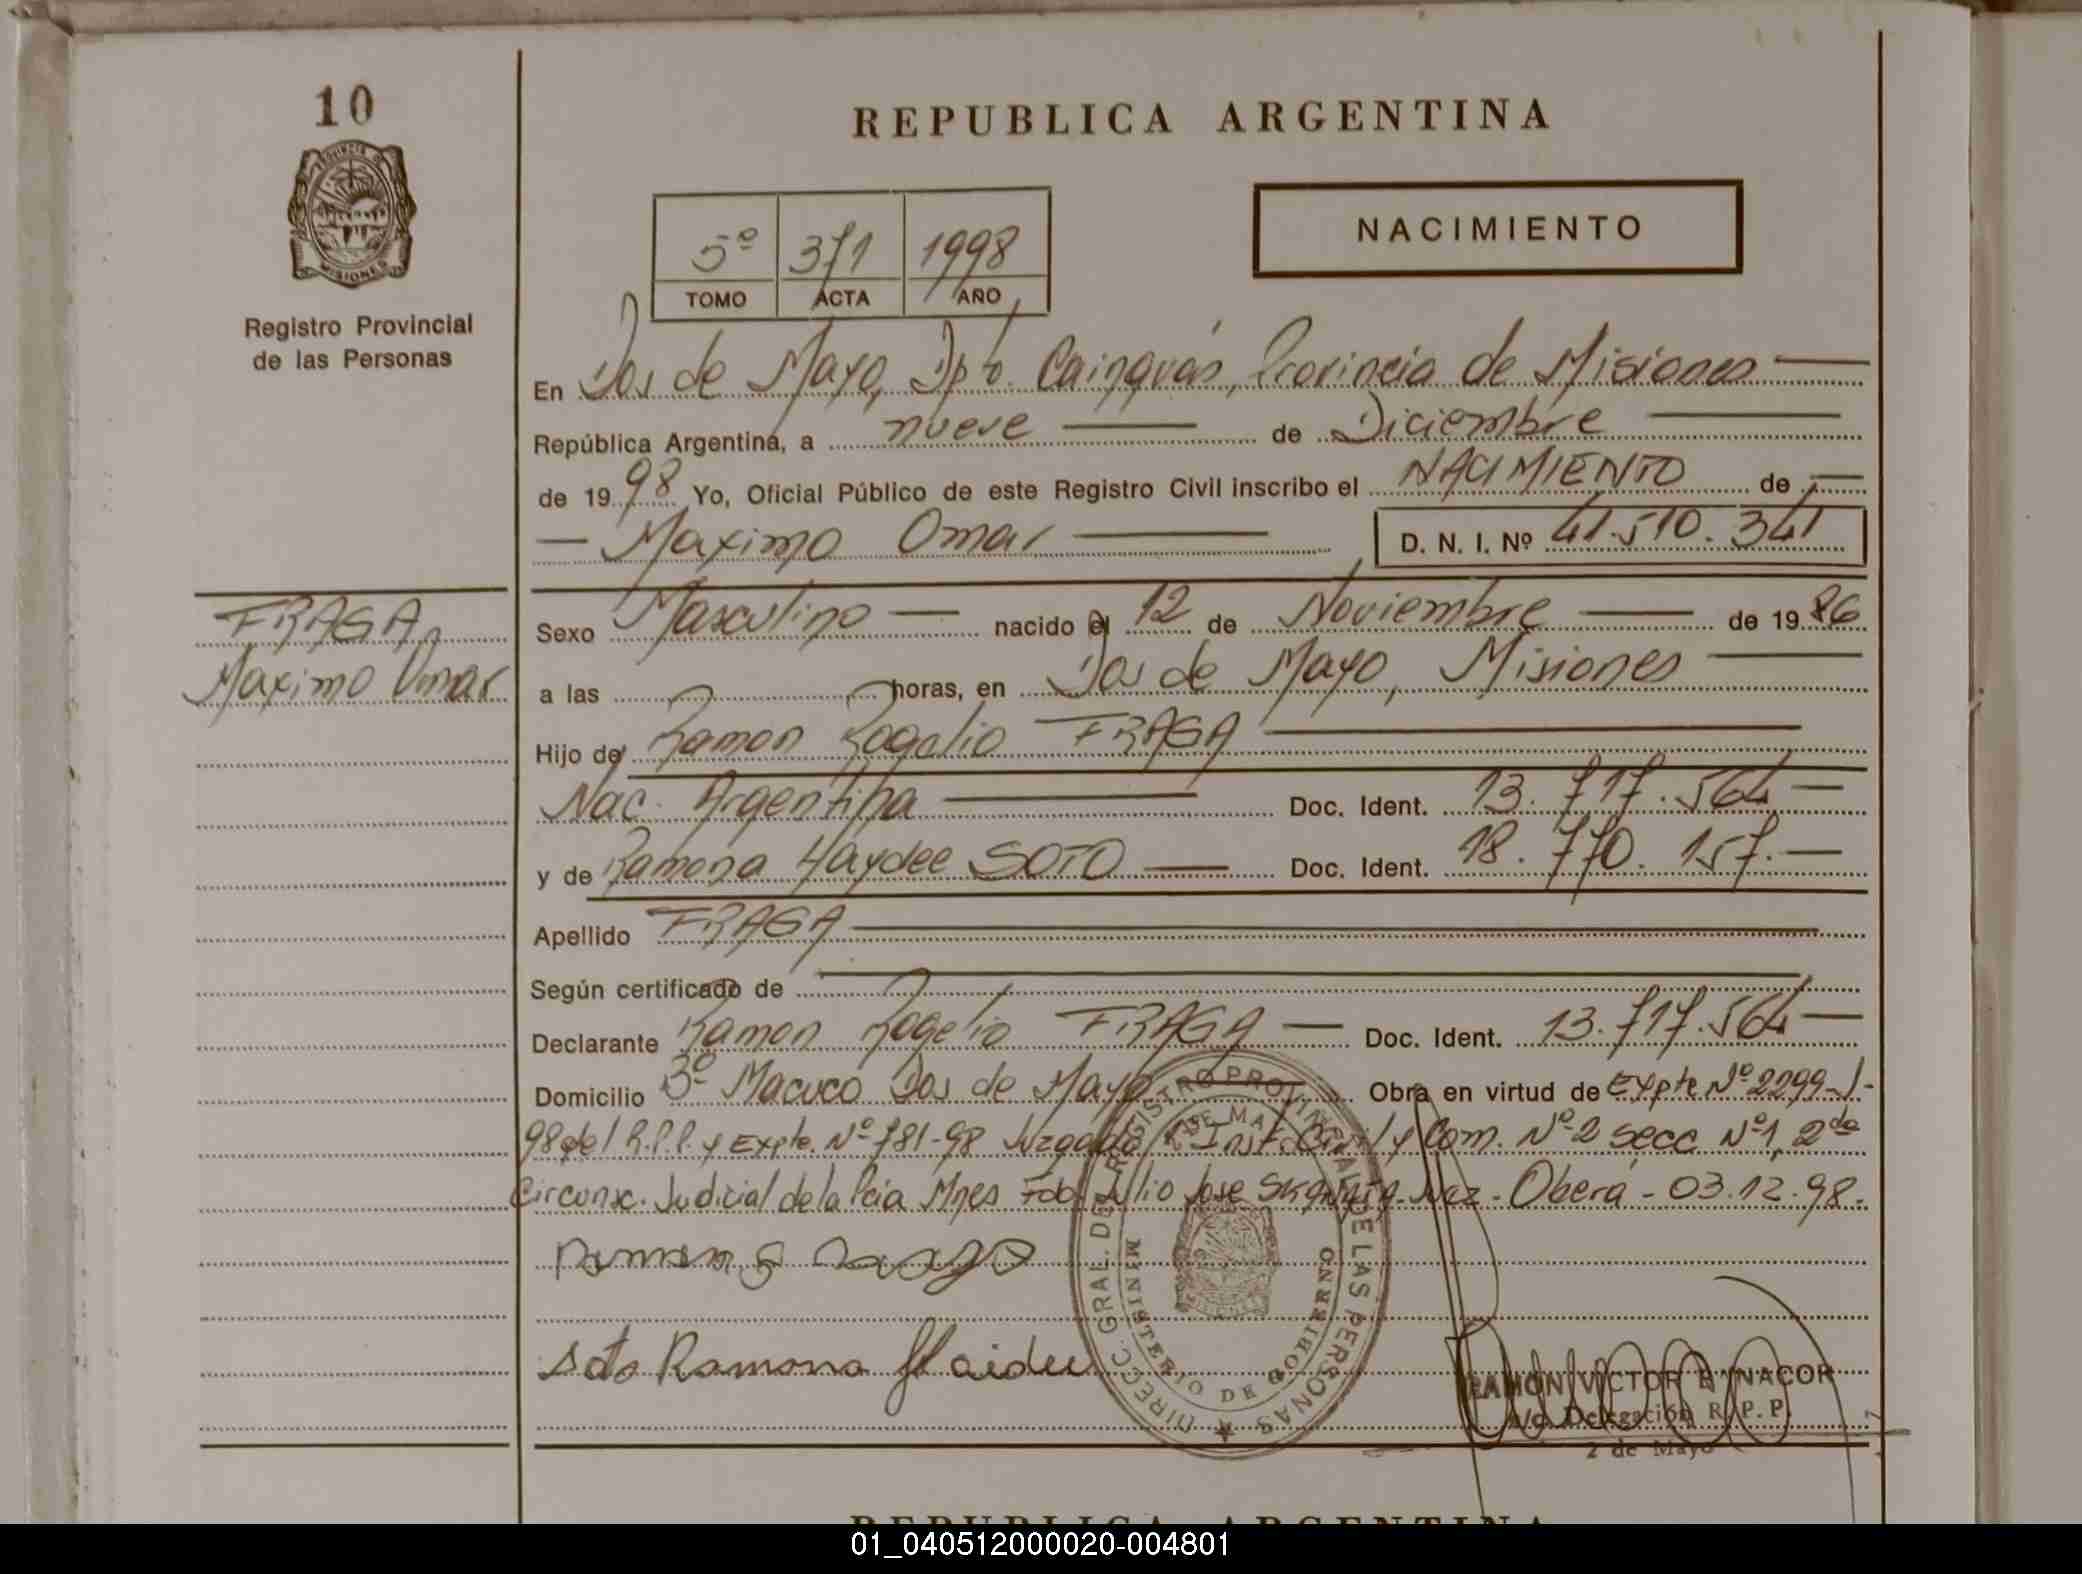 10
REPUBLICA ARGENTINA
PROVINCIA DE
MISIONES
Registro Provincial
de las Personas
NACIMIENTO
5º 371 1998
TOMO ACTA AÑO
En Dos de Mayo, Dpto. Cainguás, Provincia de Misiones
República Argentina, a nueve de Diciembre
de 1998 Yo, Oficial Público de este Registro Civil inscribo el NACIMIENTO de
Maximo Omar D. N. I. Nº 41.510.341
FRAGA
Maximo Omar
Sexo Masculino nacido el 12 de Noviembre de 1986
a las horas, en Dos de Mayo, Misiones
Hijo de Ramon Rogelio FRAGA
Nac. Argentina Doc. Ident. 13.717.564
y de Ramona Haydee SOTO Doc. Ident. 18.770.157.
Apellido FRAGA
Según certificado de
Declarante Ramon Rogelio FRAGA Doc. Ident. 13.717.564
Domicilio 3º Macuco Dos de Mayo Obra en virtud de Expte Nº 2299-J-
98 del R.P.P. y Expte. Nº 781-98 Juzgado 1º Inst. Civil y Com. Nº 2 secc. Nº 1, 2da
Circunsc. Judicial de la Pcia Mnes Fdo. Julio Jose Juez - Oberá - 03.12.98.
DIRECC. GRAL. DEL REGISTRO PROVINCIAL DE LAS PERSONAS
2 DE MAYO
MINISTERIO DE GOBIERNO
Soto Ramona Haidee
RAMON VICTOR
a/c. Delegación R. P. P.
2 de Mayo
REPUBLICA ARGENTINA
01_040512000020-004801